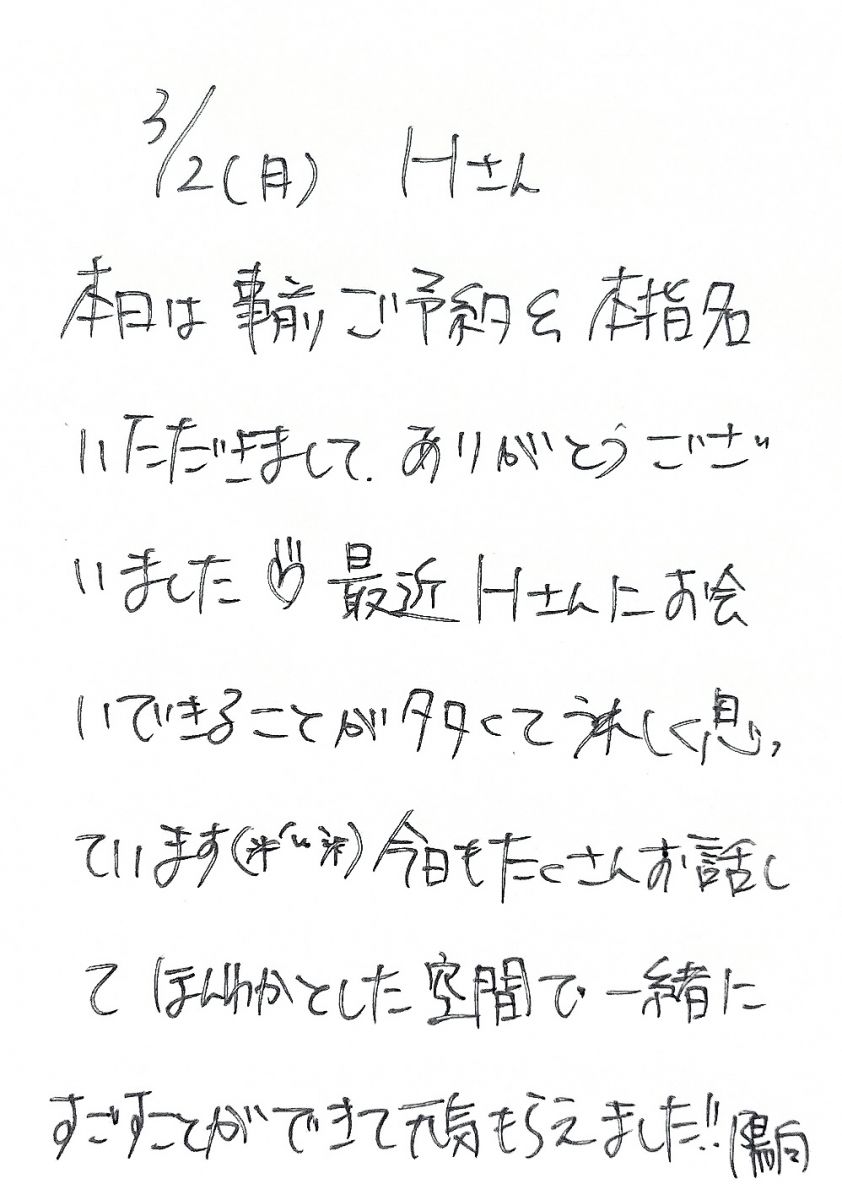 3/2(月) Hさん
本日は事前ご予約&本指名
いただきまして、ありがとうござい
いました♡最近Hさんにお会
いできることが多くて嬉しく思っ
ています(*´`*)今日もたくさんお話し
てほんわかとした空間で一緒に
すごすことができて元気もらえました!!陽向